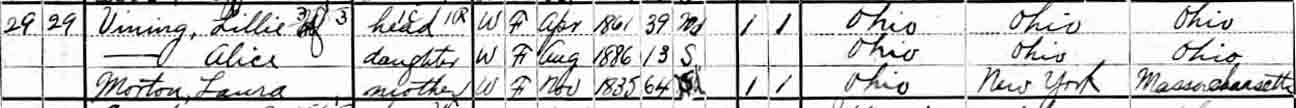 29 29 Vining, Lillie 3 head W F Apr 1861 39 1 1 Ohio Ohio Ohio
— Alice daughter W F Aug 1886 13 S Ohio Ohio Ohio
Morton, Laura mother W F Nov 1835 64 1 1 Ohio New York Massachusetts